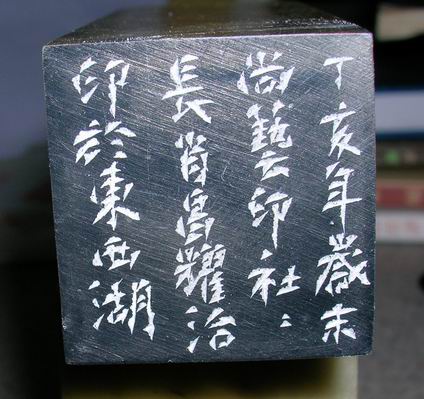 丁亥年歲末
尚藝印社:
長肖昌耀治
印於東西湖